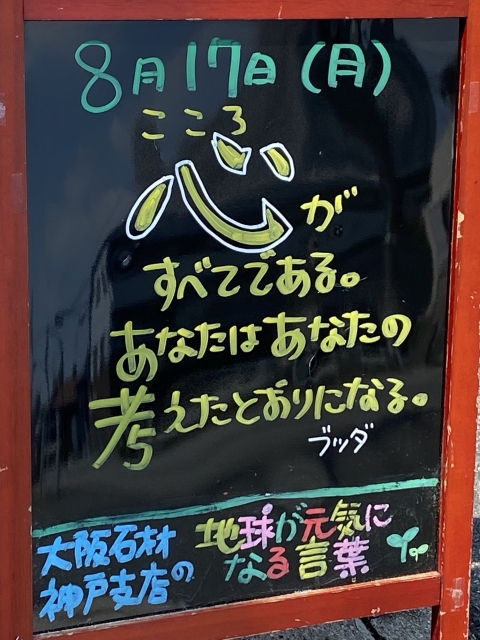 8月17日(月)
こころ
心が
すべてである。
あなたはあなたの
考えたとおりになる。
ブッダ
大阪石材
神戸支店の
地球が元気に
なる言葉